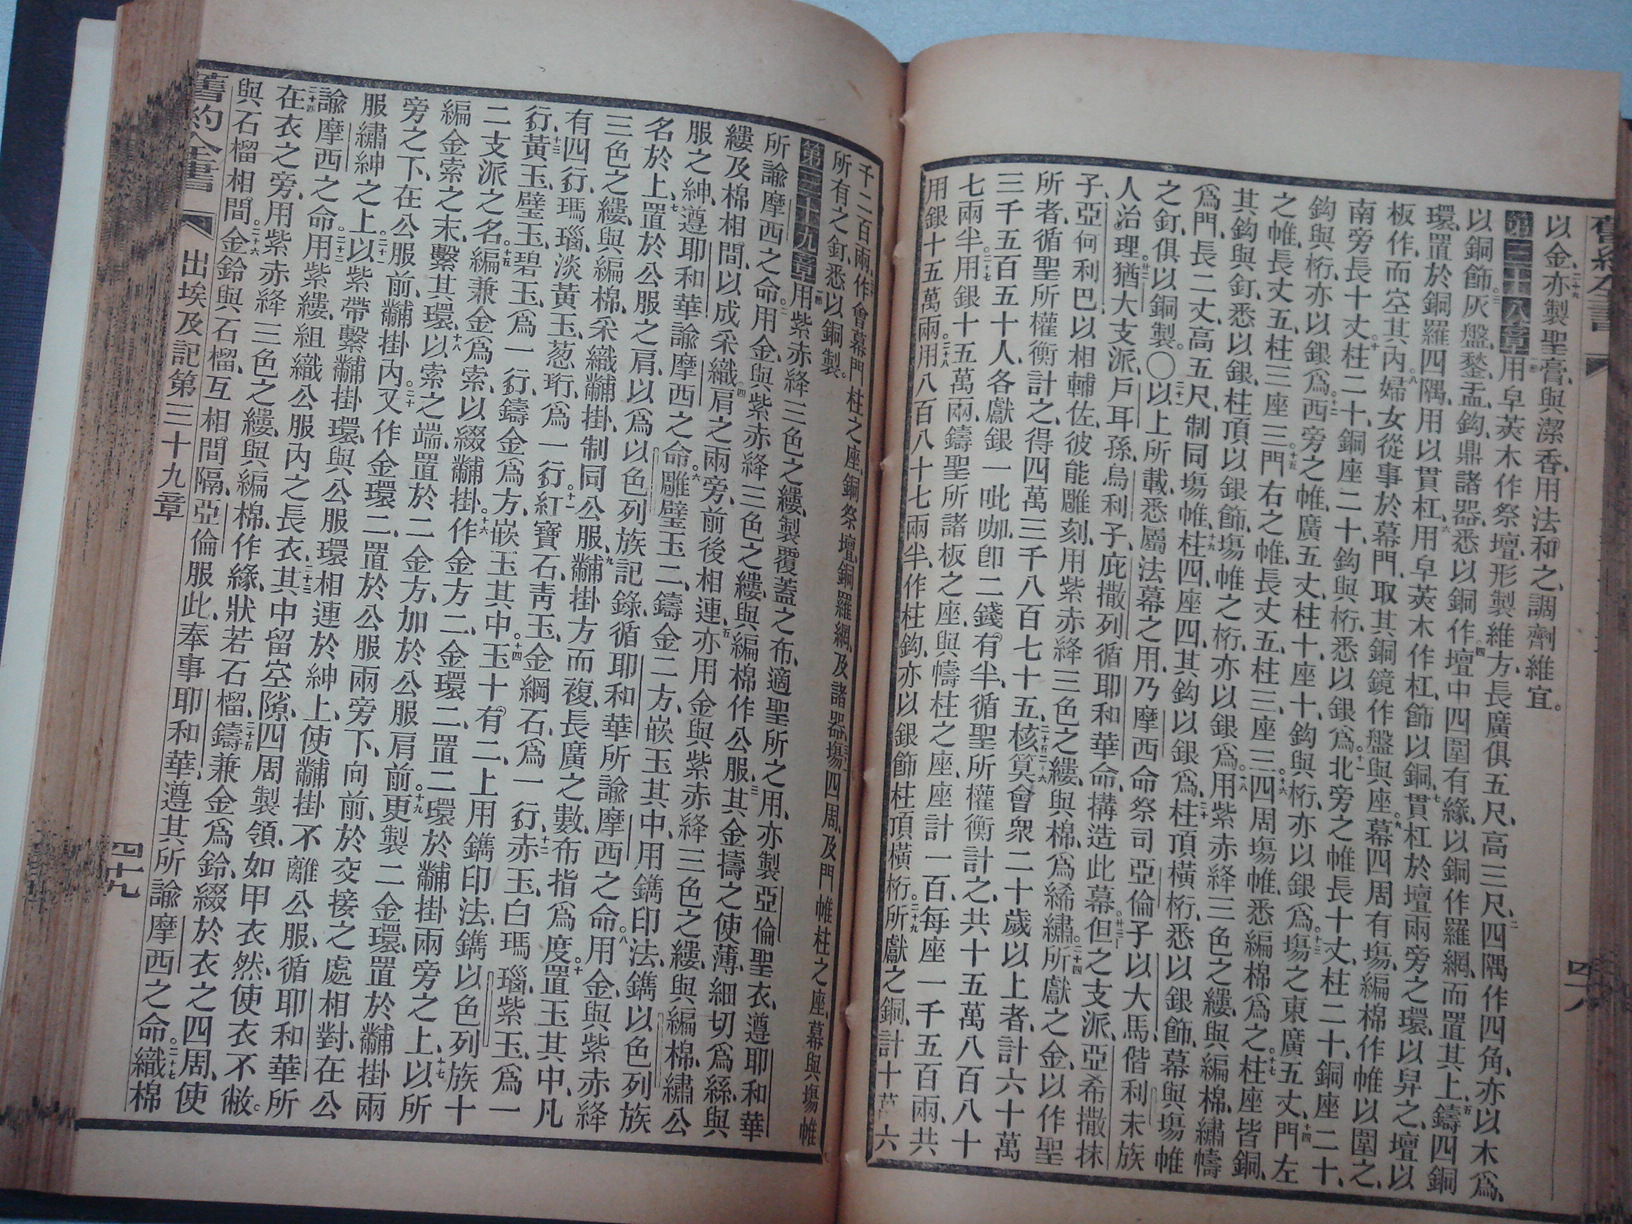 舊約全書
四十八
以金亦製聖膏與潔香用法和之調劑維宜。
第三十八章用皁莢木作祭壇形製維方長廣俱五尺高三尺四隅作四角亦以木爲
以銅飾灰盤鍫盂鈎鼎諸器悉以銅作壇中四圍有緣以銅作羅網而置其上鑄四銅
環置於銅羅四隅用以貫杠用皁莢木作杠飾以銅貫杠於壇兩旁之環以舁之壇以
板作而空其內婦女從事於幕門取其銅鏡作盤與座幕四周有塲編棉作帷以圍之
南旁長十丈柱二十銅座二十鈎與桁悉以銀爲北旁之帷長十丈柱二十銅座二十
鈎與桁亦以銀爲西旁之帷廣五丈柱十座十鈎與桁亦以銀爲塲之東廣五丈門左
之帷長丈五柱三座三門右之帷長丈五柱三座三四周塲帷悉編棉爲之柱座皆銅
其鈎與釘悉以銀柱頂以銀飾塲帷之桁亦以銀爲用紫赤絳三色之縷與編棉繡幬
爲門長二丈高五尺制同塲帷柱四座四其鈎以銀爲柱頂橫桁悉以銀飾幕與塲帷
之釘俱以銅製〇以上所載悉屬法幕之用乃摩西命祭司亞倫子以大馬偕利未族
人治理猶大支派戶耳孫烏利子庇撒列循耶和華命搆造此幕但之支派亞希撒抹
子亞何利巴以相輔佐彼能雕刻用紫赤絳三色之縷與棉爲絺繡所獻之金以作聖
所者循聖所權衡計之得四萬三千八百七十五核算會衆二十歲以上者計六十萬
三千五百五十人各獻銀一吡咖卽二錢有半循聖所權衡計之共十五萬八百八十
七兩半用銀十五萬兩鑄聖所諸板之座與幬柱之座座計一百每座一千五百兩共
用銀十五萬兩用八百八十七兩半作柱鈎亦以銀飾柱頂橫桁所獻之銅計十萬六
千二百兩作會幕門柱之座銅祭壇銅羅網及諸器塲四周及門帷柱之座幕與塲帷
所有之釘悉以銅製。
第三十九章用紫赤絳三色之縷製覆蓋之布適聖所之用亦製亞倫聖衣遵耶和華
所諭摩西之命用金與紫赤絳三色之縷與編棉作公服其金擣之使薄細切爲絲與
縷及棉相間以成采織肩之兩旁前後相連亦用金與紫赤絳三色之縷與編棉繡公
服之紳遵耶和華諭摩西之命雕璧玉二鑄金二方嵌玉其中用鐫印法鐫以色列族
名於上置於公服之肩以爲以色列族記錄循耶和華所諭摩西之命用金與紫赤絳
三色之縷與編棉采織黼掛制同公服黼掛方而複長廣之數布指爲度置玉其中凡
有四行瑪瑙淡黃玉葱珩爲一行紅寶石靑玉金綱石爲一行赤玉白瑪瑙紫玉爲一
行黃玉璧玉碧玉爲一行鑄金爲方嵌玉其中玉十有二上用鐫印法鐫以色列族十
二支派之名編兼金爲索以綴黼掛作金方二金環二置二環於黼掛兩旁之上以所
編金索之末繫其環以索之端置於二金方加於公服肩前更製二金環置於黼掛兩
旁之下在公服前黼掛內又作金環二置於公服兩旁下向前於交接之處相對在公
服繡紳之上以紫帶繫黼掛環與公服環相連於紳上使黼掛不離公服循耶和華所
諭摩西之命用紫縷組織公服內之長衣其中留空隙四周製領如甲衣然使衣不敝。
在衣之旁用紫赤絳三色之縷與編棉作緣狀若石榴鑄兼金爲鈴綴於衣之四周使
與石榴相間金鈴與石榴互相間隔亞倫服此奉事耶和華遵其所諭摩西之命織棉
舊約全書
出埃及記第三十九章
四十九